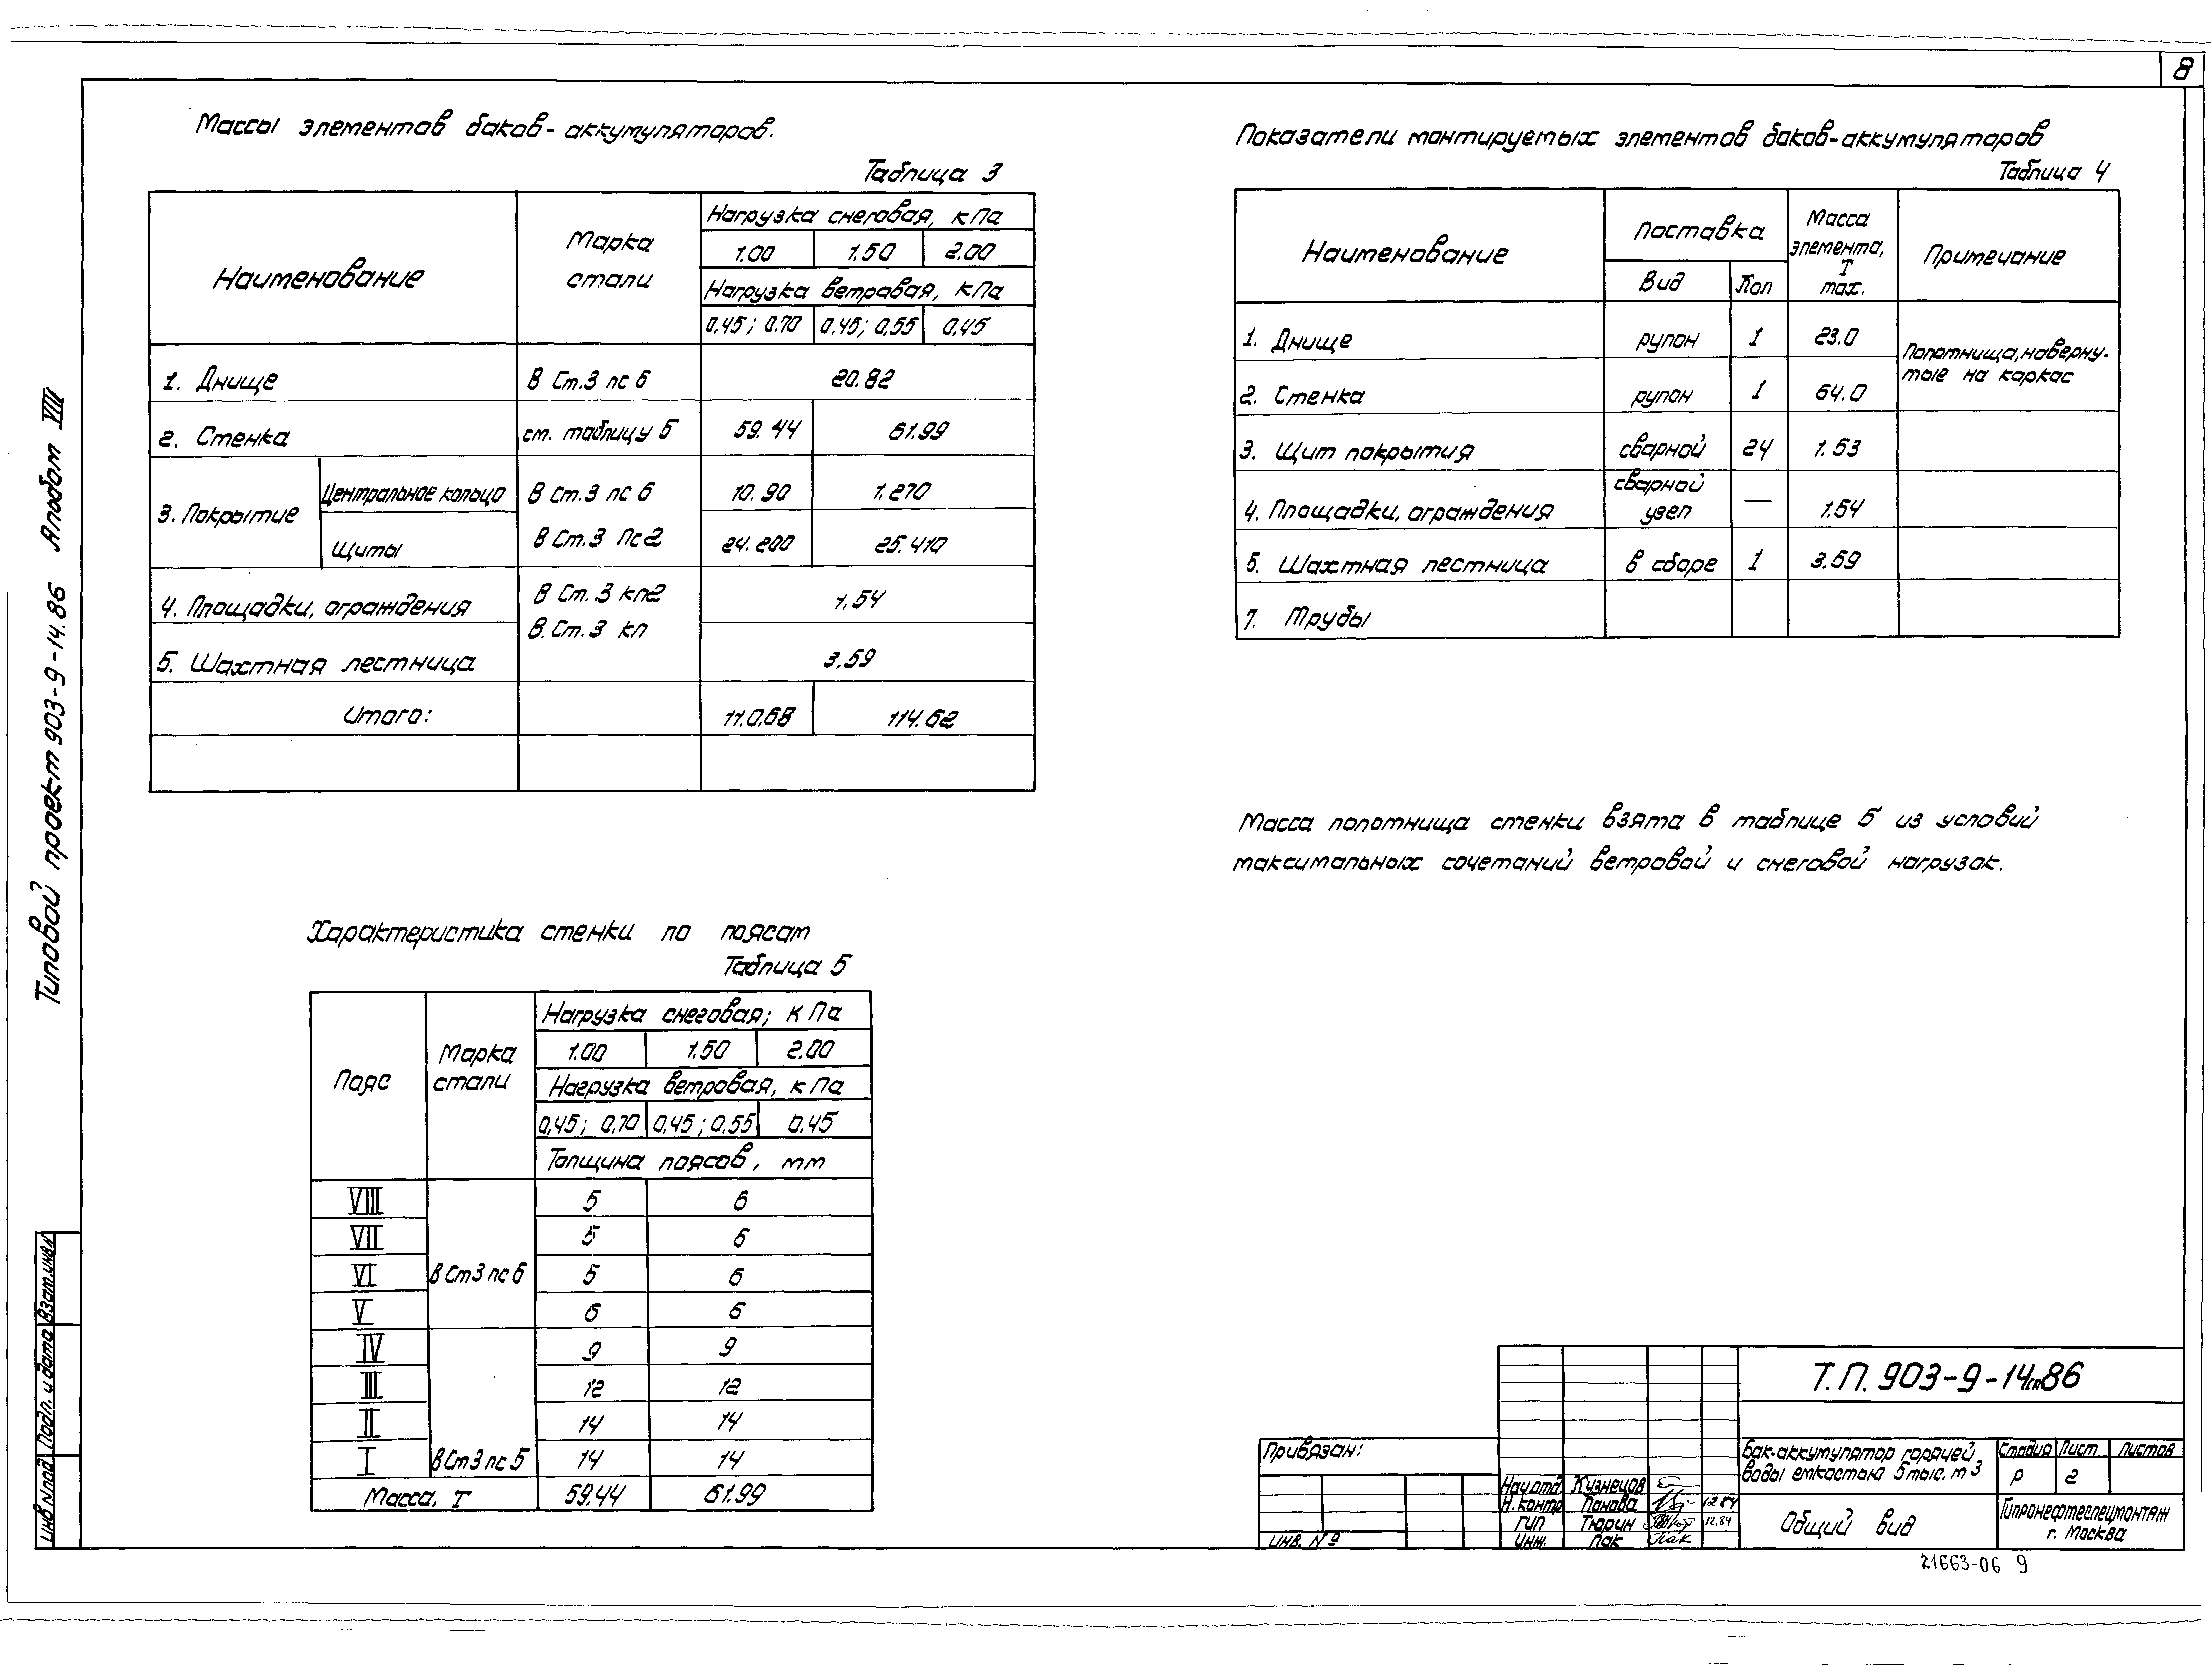 8
Типовой проект 903-9-14.86 Альбом VIII
Массы элементов баков-аккумуляторов.
Таблица 3
Наименование
Марка стали
Нагрузка снеговая, кПа
1.00 1.50 2.00
Нагрузка ветровая, кПа
0,45; 0.70 0.45; 0,55 0,45
1. Днище В Ст.3 пс 6 20.82
2. Стенка см. таблицу 5 59.44 61.99
3. Покрытие
Центральное кольцо В Ст.3 пс 6 10.90 1.270
Щиты В Ст.3 Пс2 24.200 25.410
4. Площадки, ограждения В Ст.3 кп2 1,54
В.Ст.3 кп
5. Шахтная лестница 3.59
Итого: 110.68 114.62
Показатели монтируемых элементов баков-аккумуляторов
Таблица 4
Наименование
Поставка
Вид Кол
Масса элемента, Т max.
Примечание
1. Днище рулон 1 23.0
Полотнища, наверну-
тые на каркас
2. Стенка рулон 1 64.0
3. Щит покрытия сварной 24 1.53
4. Площадки, ограждения сварной узел — 1.54
5. Шахтная лестница в сборе 1 3.59
7. Трубы
Масса полотнища стенки взята в таблице 5 из условий
максимальных сочетаний ветровой и снеговой нагрузок.
Характеристика стенки по поясам
Таблица 5
Пояс
Марка стали
Нагрузка снеговая; кПа
1.00 1.50 2.00
Нагрузка ветровая, кПа
0,45; 0,70 0,45; 0,55 0,45
Толщина поясов, мм
VIII 5 6
VII 5 6
VI В Ст3 пс 6 5 6
V 6 6
IV 9 9
III 12 12
II 14 14
I В Ст3 пс 5 14 14
Масса, Т 59.44 61.99
Т.П. 903-9-14сп86
Привязан:
Инв. №
Нач.отд. Кузнецов
Н.контр Панова 12.84
ГИП Тюрин 12.84
Инж. Пак
Бак-аккумулятор горячей
воды емкостью 5 тыс. м3
Стадия Лист Листов
Р 2
Общий вид
Гипронефтеспецмонтаж
г. Москва
21663-06 9
Инв N под Подп. и дата Взам.инв.N